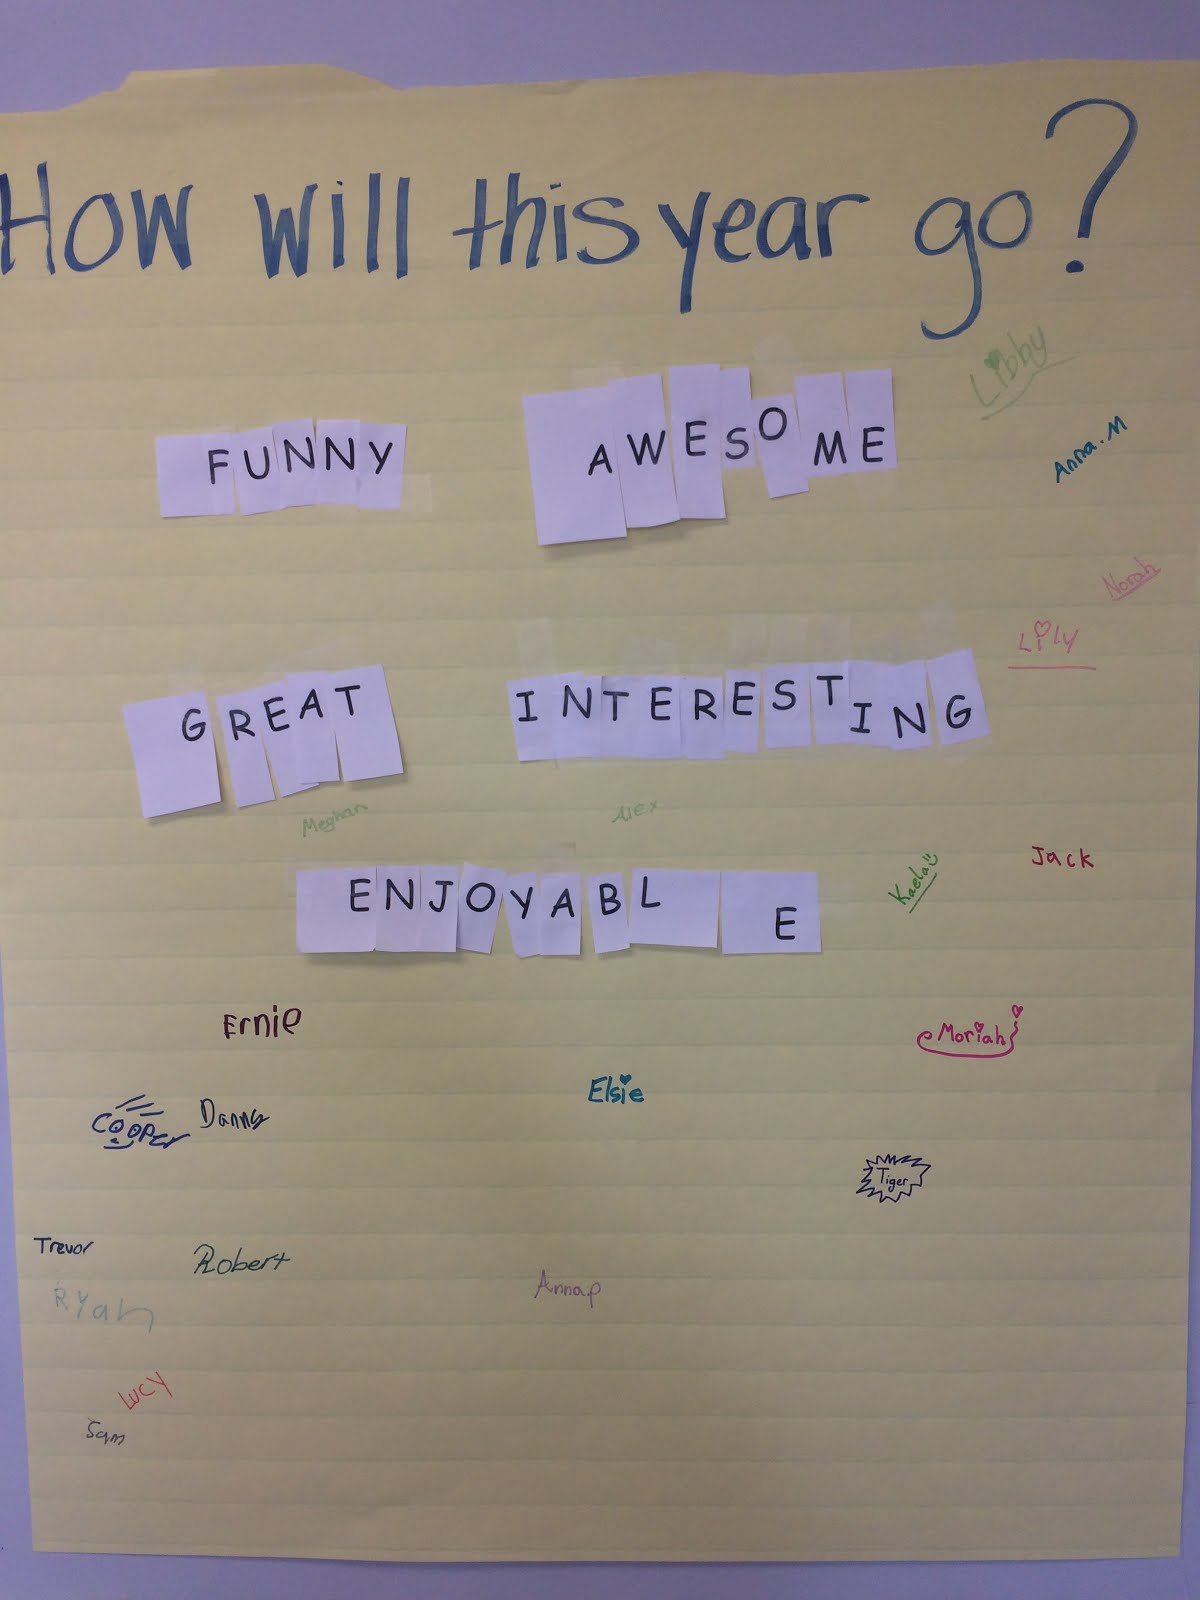 How will this year go?
Libby
FUNNY AWESOME
Anna.M
Norah
Lily
GREAT INTERESTING
Meghan Alex
Jack
Kaela
ENJOYABLE
Ernie
Moriah
Elsie
Cooper Danny
Tiger
Trevor
Robert
Annap
Ryan
Lucy
Sam